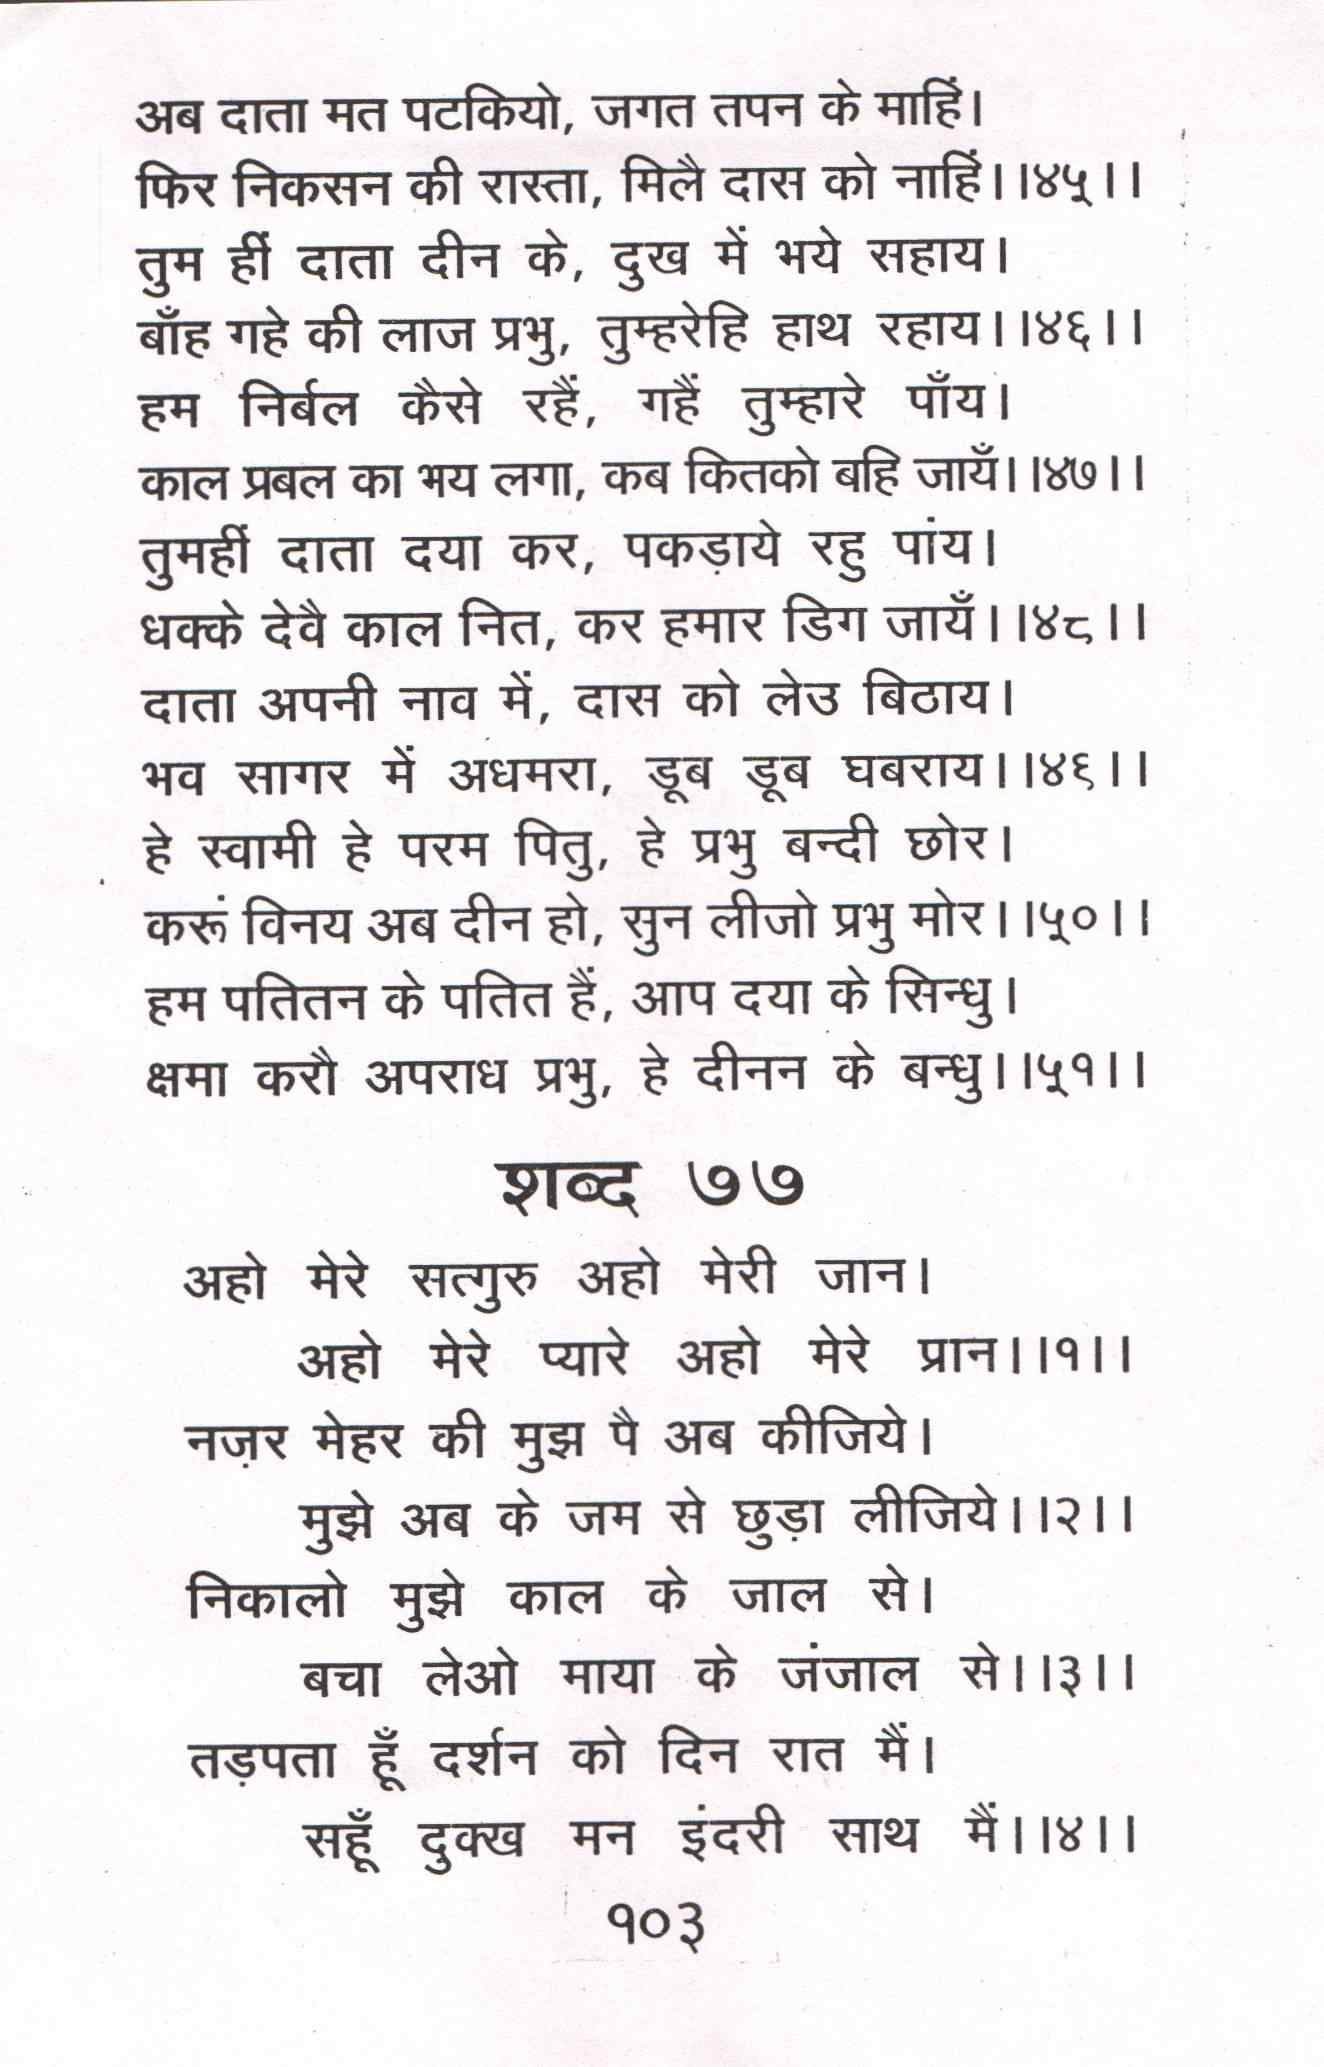 अब दाता मत पटकियो, जगत तपन के माहिं।
फिर निकसन की रास्ता, मिलै दास को नाहिं।।४५।।
तुम हीं दाता दीन के, दुख में भये सहाय।
बाँह गहे की लाज प्रभु, तुम्हरेहि हाथ रहाय।।४६।।
हम निर्बल कैसे रहैं, गहैं तुम्हारे पाँय।
काल प्रबल का भय लगा, कब कितको बहि जायँ।।४७।।
तुमहीं दाता दया कर, पकड़ाये रहु पांय।
धक्के देवै काल नित, कर हमार डिग जायँ।।४८।।
दाता अपनी नाव में, दास को लेउ बिठाय।
भव सागर में अधमरा, डूब डूब घबराय।।४९।।
हे स्वामी हे परम पितु, हे प्रभु बन्दी छोर।
करूं विनय अब दीन हो, सुन लीजो प्रभु मोर।।५०।।
हम पतितन के पतित हैं, आप दया के सिन्धु।
क्षमा करौ अपराध प्रभु, हे दीनन के बन्धु।।५१।।
शब्द ७७
अहो मेरे सत्गुरु अहो मेरी जान।
अहो मेरे प्यारे अहो मेरे प्रान।।१।।
नज़र मेहर की मुझ पै अब कीजिये।
मुझे अब के जम से छुड़ा लीजिये।।२।।
निकालो मुझे काल के जाल से।
बचा लेओ माया के जंजाल से।।३।।
तड़पता हूँ दर्शन को दिन रात मैं।
सहूँ दुक्ख मन इंदरी साथ मैं।।४।।
१०३